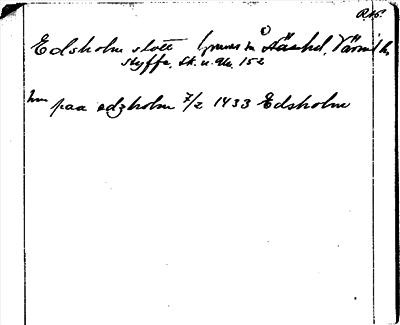 Edsholm slott Grums hd, Värml.
Styffe, Sk. u. 152
paa edzholm 7/2 1433 Edsholm